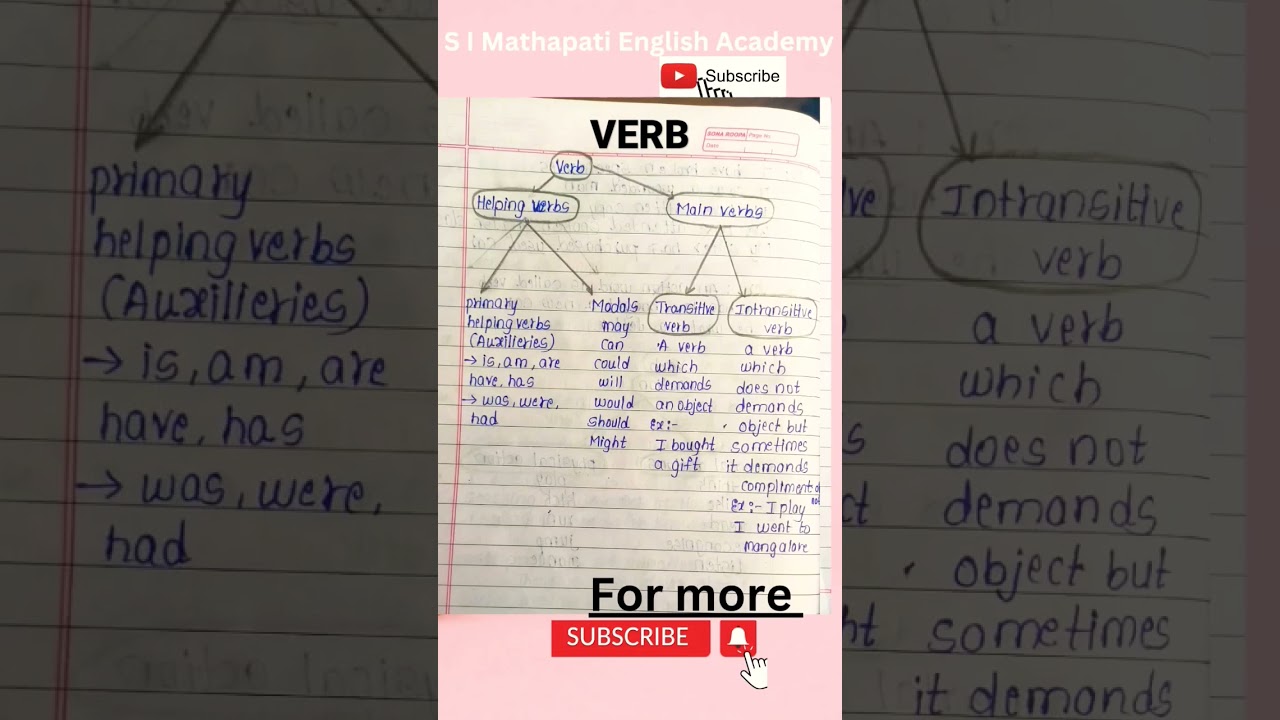 S I Mathapati English Academy
Subscribe
VERB
SONA ROOPA Page No
Date
Verb
Helping verbs
Main verbs
primary
helping verbs
(Auxilieries)
→ is, am, are
have, has
→ was, were,
had
Modals
may
can
could
will
would
should
Might
Transitive
verb
A verb
which
demands
an object
Ex:-
I bought
a gift
Intransitive
verb
a verb
which
does not
demands
object but
sometimes
it demands
compliment
Ex:- I play
I went to
mangalore
For more
SUBSCRIBE
primary
helping verbs
(Auxilieries)
→ is, am, are
have, has
→ was, were,
had
Intransitive
verb
a verb
which
does not
demands
object but
sometimes
it demands